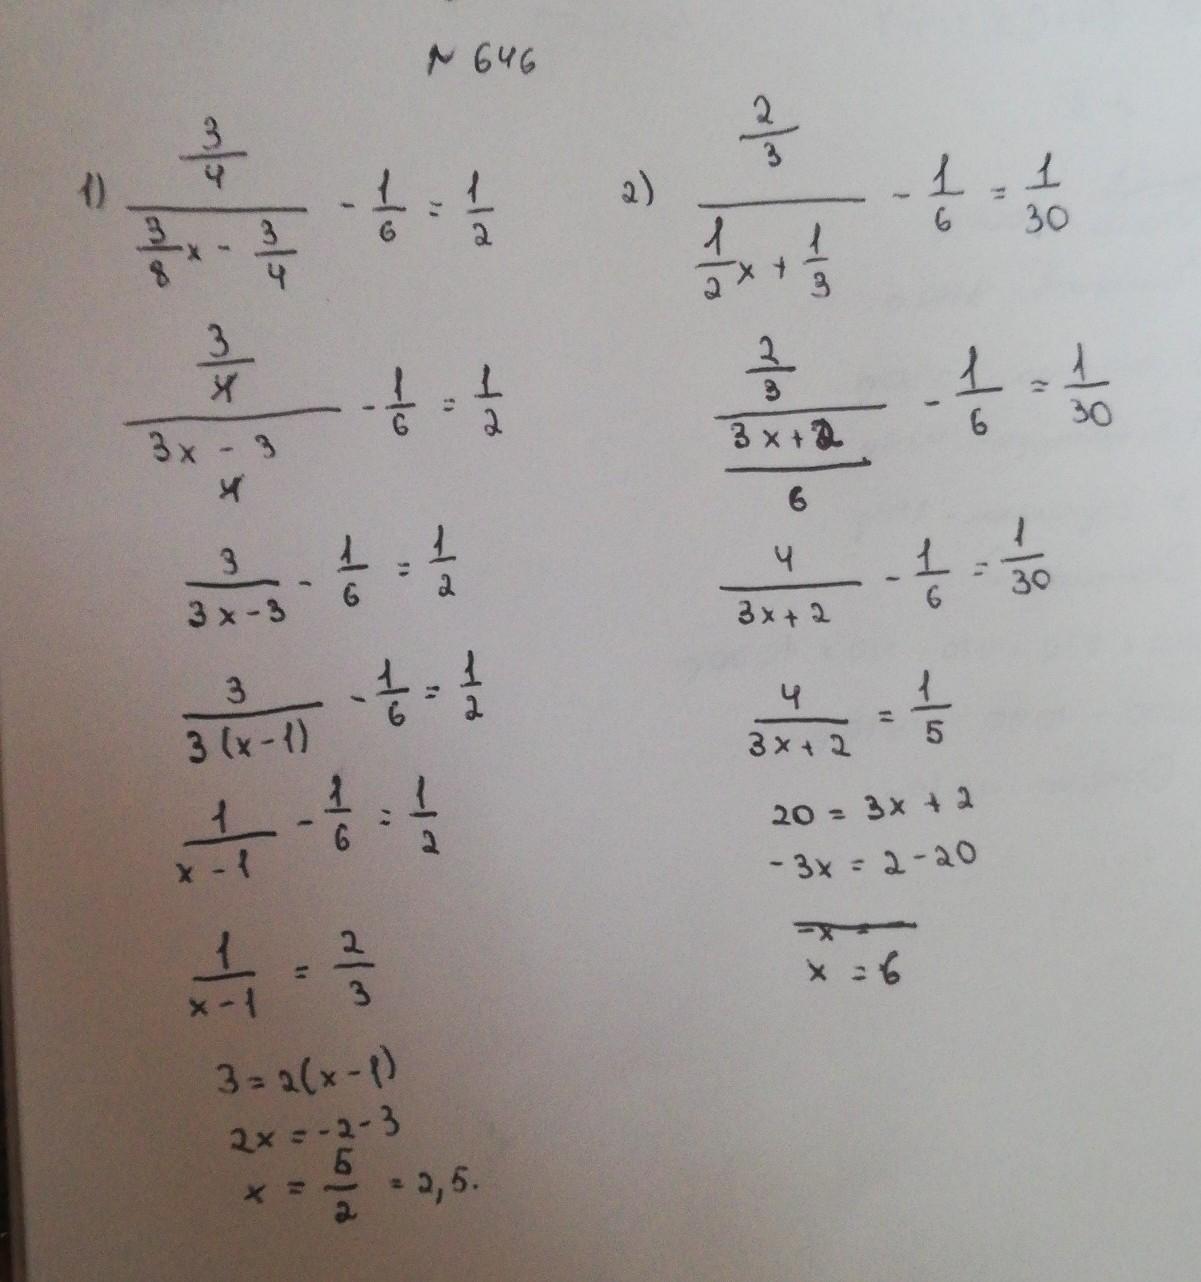 N 646
1) 3/4 / (3/8 x - 3/4) - 1/6 = 1/2
3/4 / ((3x - 3)/4) - 1/6 = 1/2
3/(3x-3) - 1/6 = 1/2
3/(3(x-1)) - 1/6 = 1/2
1/(x-1) - 1/6 = 1/2
1/(x-1) = 2/3
3=2(x-1)
2x=-2-3
x = 5/2 = 2,5.
2) 2/3 / (1/2 x + 1/3) - 1/6 = 1/30
2/3 / ((3x+2)/6) - 1/6 = 1/30
4/(3x+2) - 1/6 = 1/30
4/(3x+2) = 1/5
20 = 3x + 2
-3x = 2-20
-x =
x = 6